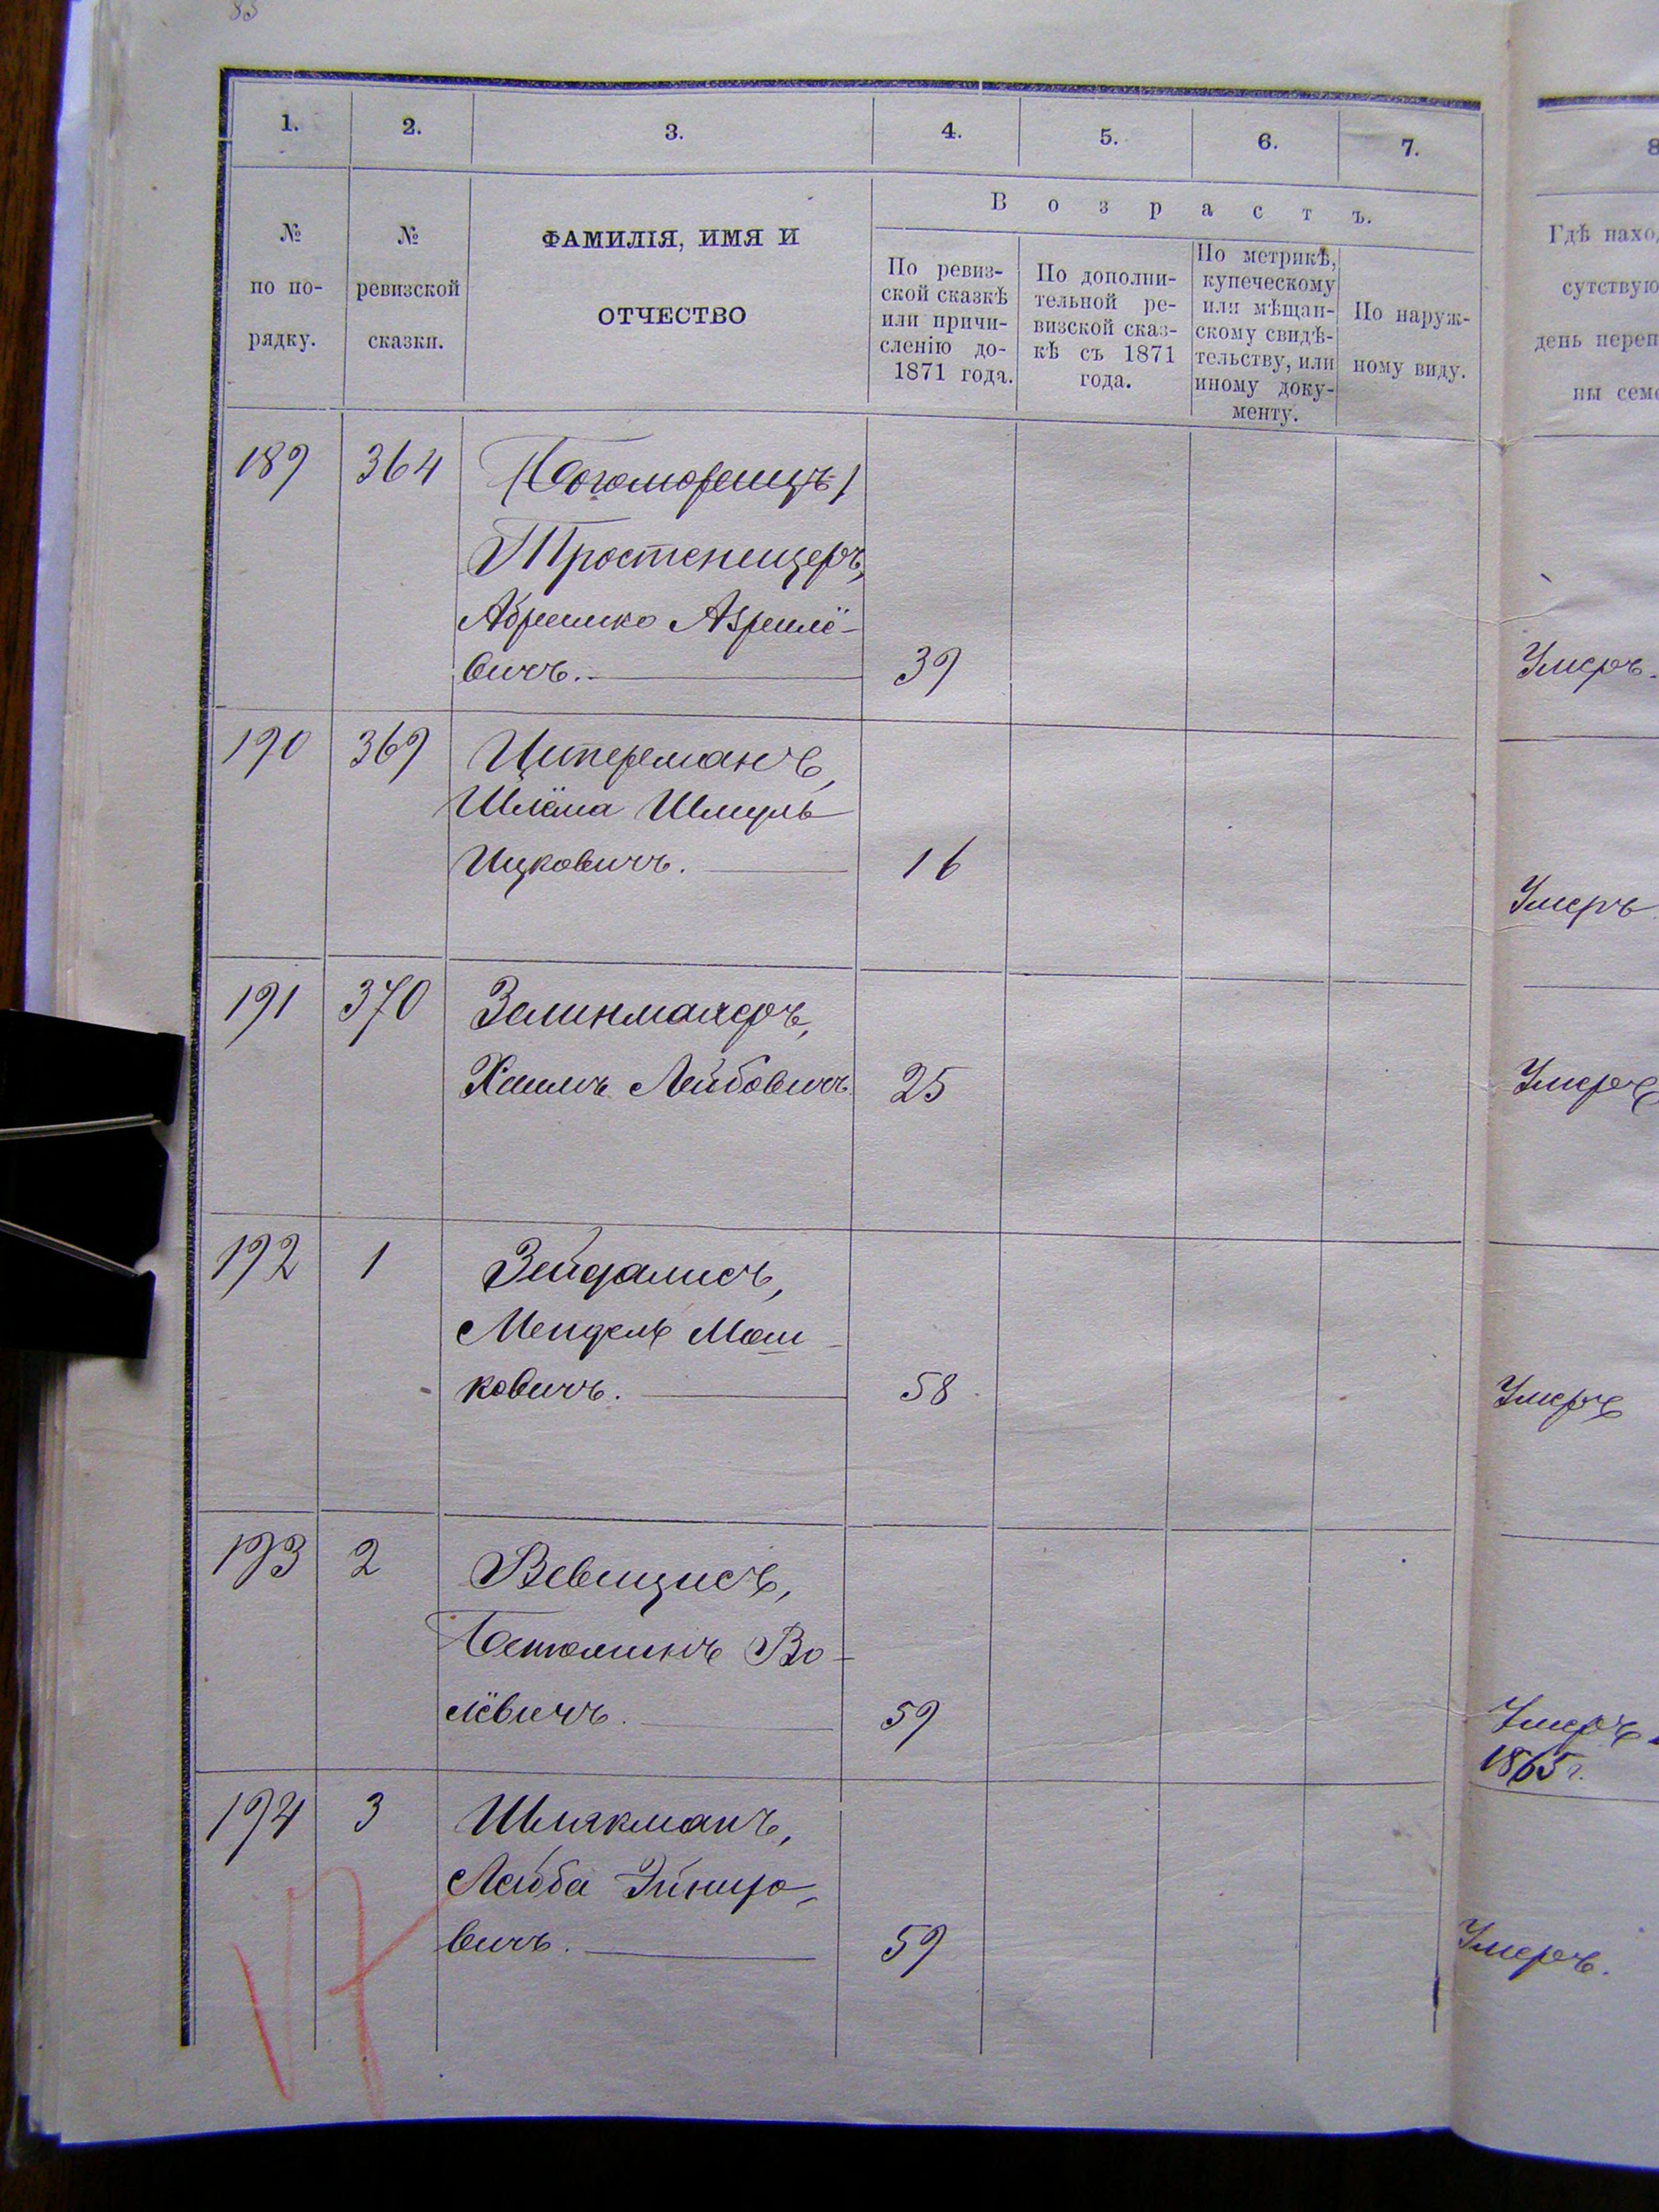 83
1. 2. 3. 4. 5. 6. 7. 8
№ по по-рядку.
№ ревизской сказки.
ФАМИЛІЯ, ИМЯ И
ОТЧЕСТВО
Возрастъ.
По ревиз-
ской сказкѣ
или причи-
сленію до-
1871 года.
По дополни-
тельной ре-
визской сказ-
кѣ съ 1871
года.
По метрикѣ,
купеческому
или мѣщан-
скому свидѣ-
тельству, или
иному доку-
менту.
По наруж-
ному виду.
Гдѣ нахо
сутствую
день переп
ны сем
189 364
Тростеницеръ,
Абрашко
вичъ. 39 Умеръ.
190 369 Циперманъ,
Шлёма Шмуль
Ицковичъ. 16 Умеръ
191 370 Залинмаяеръ,
Хаимъ Лейбовичъ 25 Умеръ
192 1 Зейдалисъ,
Мендель Мош-
ковичъ. 58 Умеръ
193 2
Беньюминъ Во-
лёвичъ. 59 Умеръ
1865 г.
194 3 Шлякманъ,
Лейба
вичъ. 59 Умеръ.